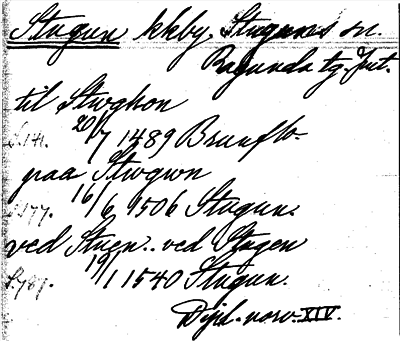 Stugun kkby. Stuguns sn.
Ragunda tg. Jmt.
til Stwghon
S. 141. 20/7 1489 Brunflo.
paa Stwgwn
S. 177. 16/6 1506 Stugun.
ved Stuen.. ved Stagen
S. 787. 19/1 1540 Stugun.
Dipl. norv. XIV.